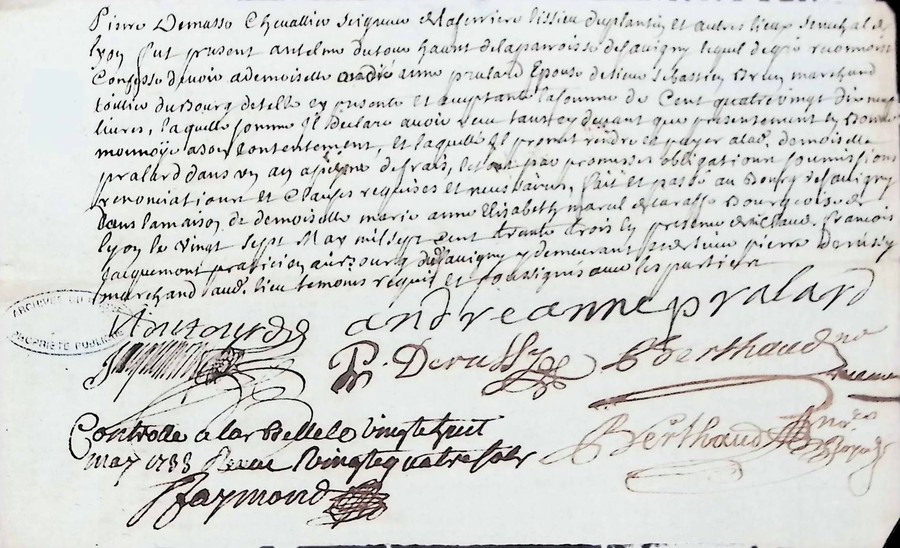 Pierre Demasso Chevallier Seigneur de laferriere lissieu duplantin et autres lieux Senechal de
lyon fut present antelme dutour hauut delaparroisse desavigny lequel degré reconnoit
Confesse devoir ademoiselle andré anne pralard Epouse desieur Sebastien Brun marchand
toillier dubourg detelle cy presente et acceptante lasomme de Cent quatre vingt dix neuf
livres, laquelle somme Il declare avoir reçu tant cy devant que presentement en bonne
monnoye ason contentement, et laquelle Il promet rendre et payer alad. demoiselle
pralard dans un an apeyne defrais, le tout par promesses obligations soumissions
renonciations et Clauses requises et necessaires, fait et passé au Bourg desavigny
dans lamaison de demoiselle marie anne Elizabeth maruel Bourgeoise de
lyon le vingt Sept May mil Sept Cent trente trois en presence de François
Jacquement praticien au bourg desavigny y demeurant et de Sieur pierre Derussy
marchand aud. lieu temoins requis et soussignés avec les parties
andreannepralard
P. Derussy Bberthaud no.re
Controllé a larbrelle le vingtehuit
may 1733 Reçu vingtequatre sols
Bberthaud no.re Royal
Raymond
ARCHIVES DU
PROPRIÉTÉ PUBLIQUE